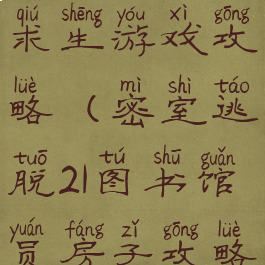 qiú shēng yóu xì gōng
求生游戏攻
lüè mì shì táo
略（密室逃
tuō tú shū guǎn
脱21图书馆
yuán fáng zǐ gōng lüè
员房子攻略